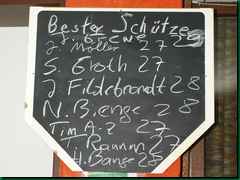 Bester Schütze
J. Möller 27
S. Groth 27
J. Fildebrandt 28
N. Bienge 28
Tim A.? 27
T. Raumm 27
H. Bange 28